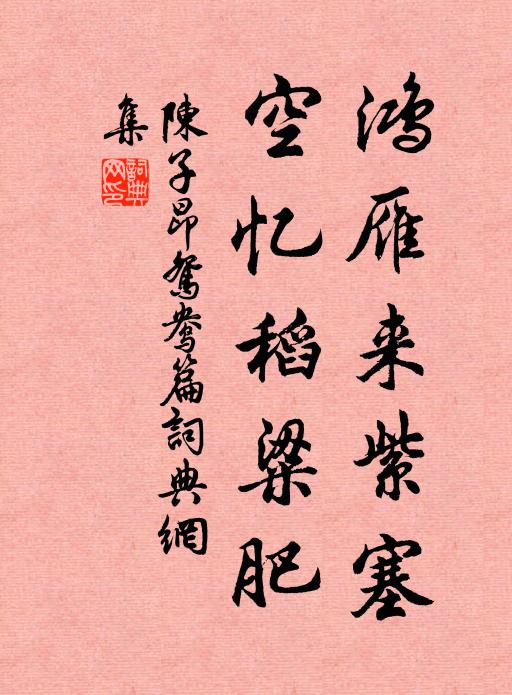 鸿雁来紫塞
空忆稻粱肥
陳子昂鴛鴦篇詞典網
集
詞典网印